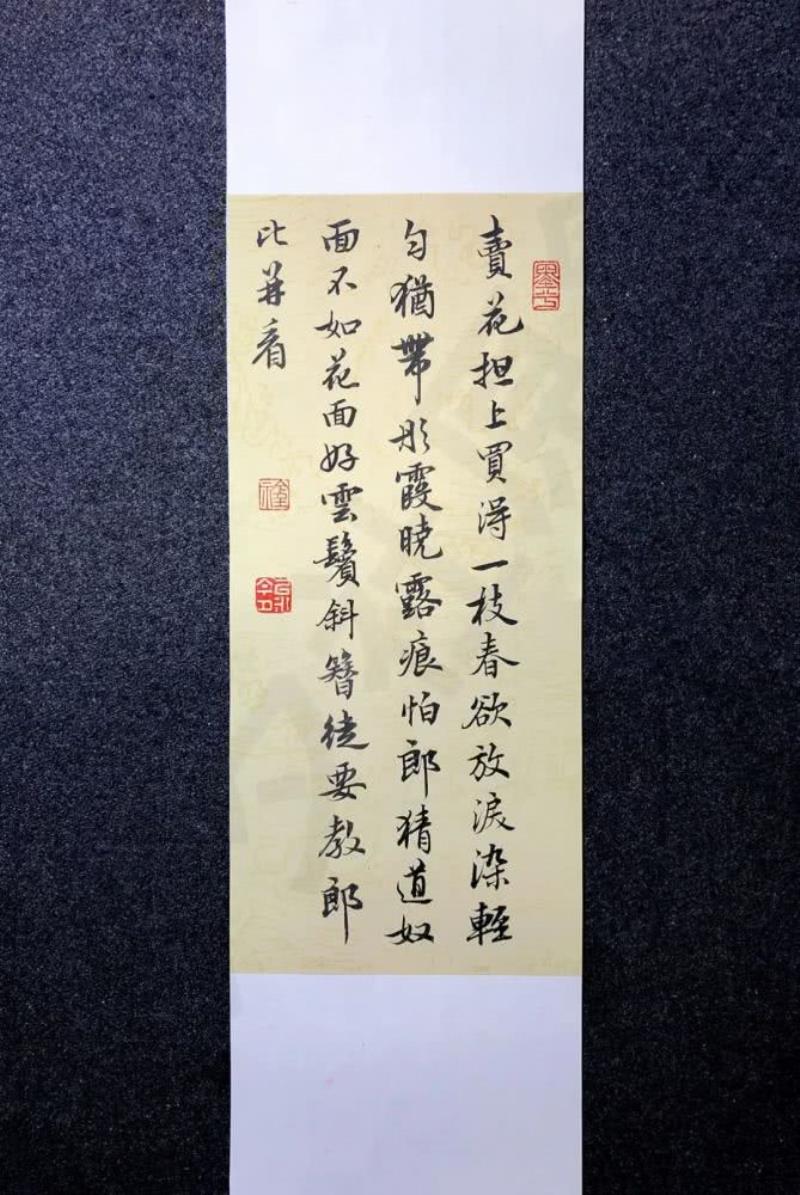 賣花担上買得一枝春欲放淚染輕
勻猶帶彤霞曉露痕怕郎猜道奴
面不如花面好雲鬢斜簪徒要教郎
比并看